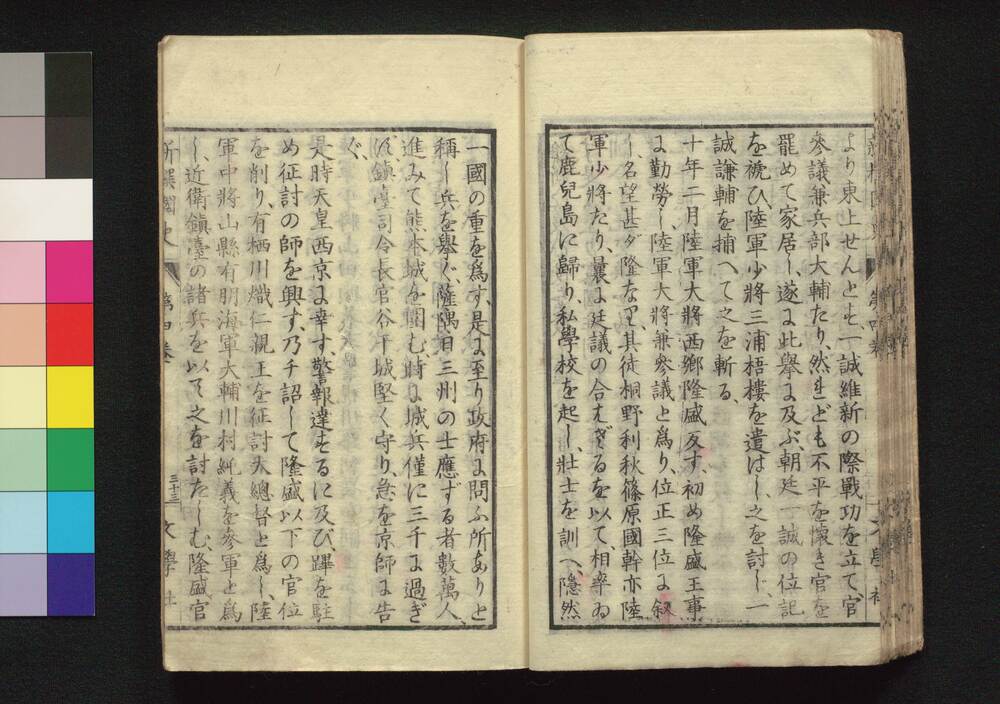 より東上せんとす、一誠維新の際戰功を立て、官
參議兼兵部大輔たり、然れども不平を懷き官を
罷めて家居し、遂に此擧に及ぶ、朝廷一誠の位記
を褫ひ、陸軍少將三浦梧樓を遣はし、之を討じ、一
誠謙輔を捕へて之を斬る、
十年二月陸軍大將西鄕隆盛反す、初め隆盛王事
に勤勞し、陸軍大將兼參議と爲り、位正三位に叙
し、名望甚ダ隆なり、其徒桐野利秋篠原國幹亦陸
軍少將たり、曩に廷議の合はざるを以て、相率ゐ
て鹿兒島に歸り、私學校を起し、壯士を訓へ、隱然
一國の重を爲す、是に至り政府に問ふ所ありと
稱し兵を擧ぐ、薩隅日三州の士應ずる者數萬人、
進みて熊本城を圍む、時に城兵僅に三千に過ぎ
ず、鎭臺司令長官谷干城堅く守り、急を京師に告
ぐ、
是時天皇西京に幸す、警報達するに及び蹕を駐
め征討の師を興す、乃チ詔して隆盛以下の官位
を削り、有栖川熾仁親王を征討大總督と爲し、陸
軍中將山縣有朋海軍大輔川村純義を參軍と爲
し、近衛鎭臺の諸兵を以て之を討たしむ、隆盛官
新撰國史 第四卷 三十三 文學社